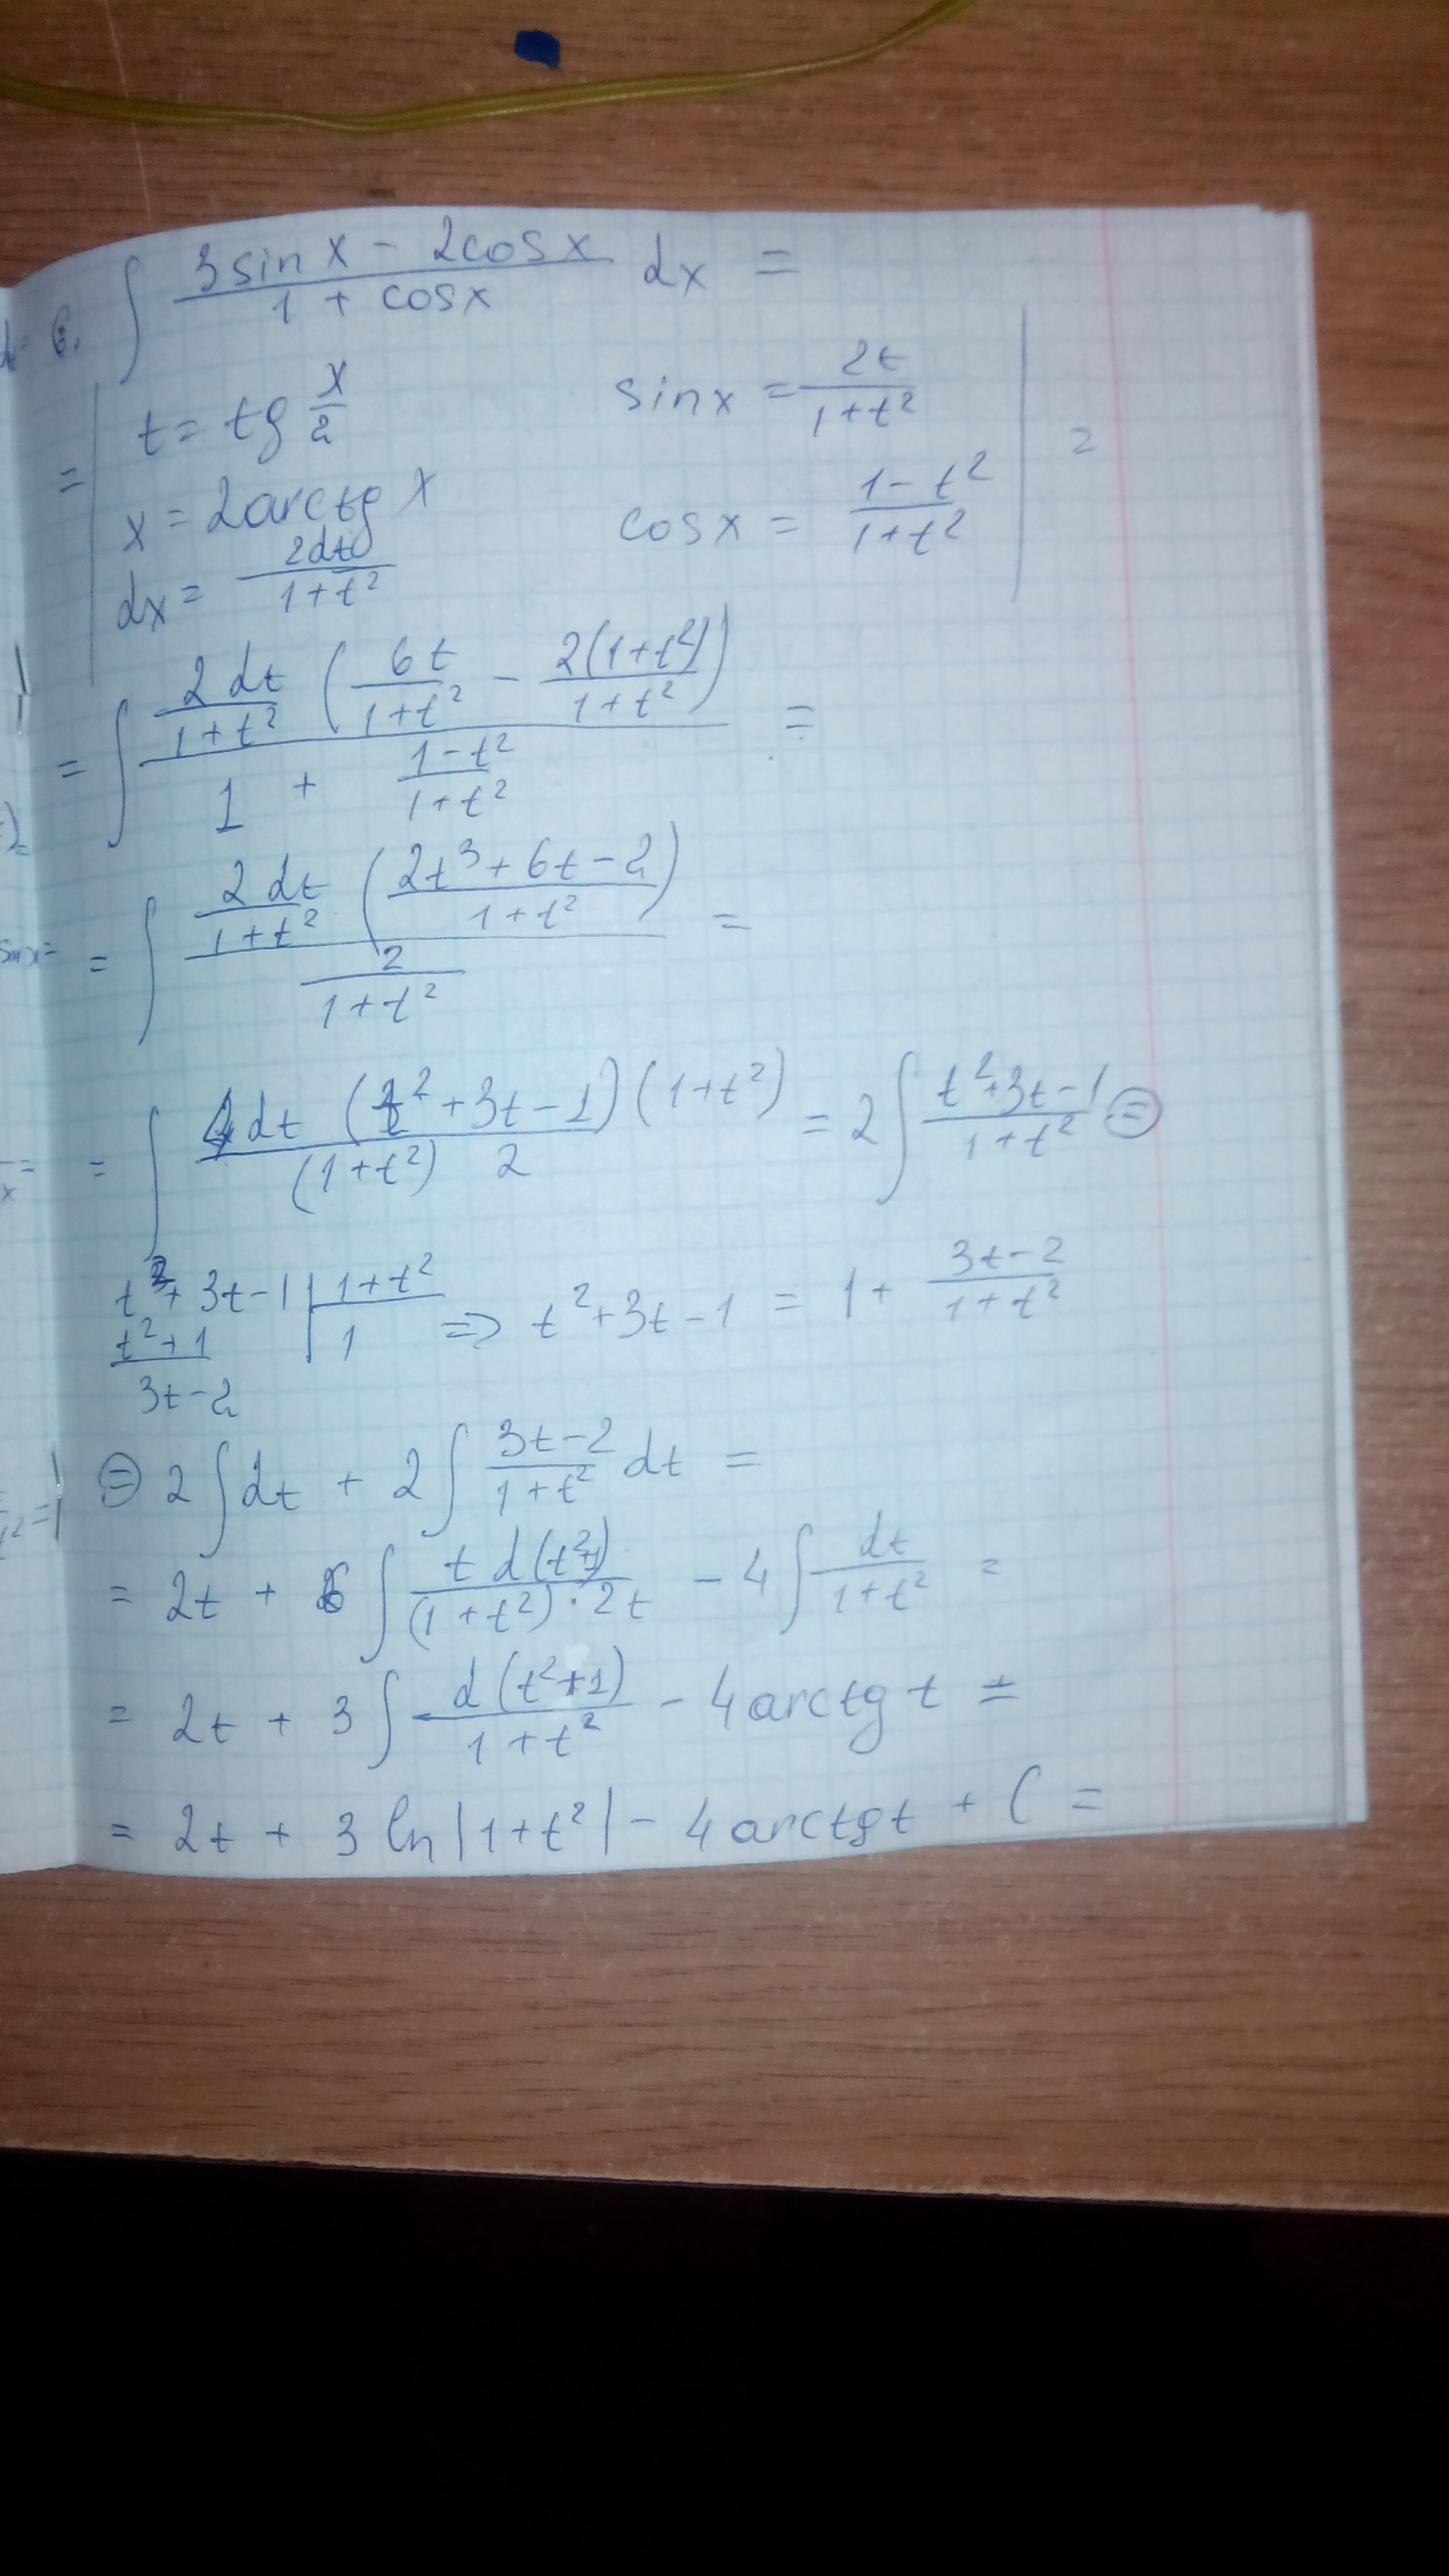 6. ∫ (3sinx - 2cosx)/(1 + cosx) dx =
= | t = tg x/2 sinx = 2t/(1+t²) | =
x = 2arctg x cosx = (1-t²)/(1+t²)
dx = 2dt/(1+t²)
= ∫ (2dt/(1+t²) (6t/(1+t²) - 2(1+t²)/(1+t²)))/(1 + (1-t²)/(1+t²)) =
= ∫ (2dt/(1+t²) ((2t³+6t-2)/(1+t²)))/(2/(1+t²)) =
= ∫ (4dt (t²+3t-1)(1+t²))/((1+t²) 2) = 2∫ (t²+3t-1)/(1+t²) ⊜
t²+3t-1 | 1+t²
t²+1 | 1 ⇒ t²+3t-1 = 1 + (3t-2)/(1+t²)
3t-2
⊜ 2∫dt + 2∫ (3t-2)/(1+t²) dt =
= 2t + 6∫ (t d(t²+1))/((1+t²)·2t) - 4∫ dt/(1+t²) =
= 2t + 3∫ d(t²+1)/(1+t²) - 4arctg t =
= 2t + 3 ln|1+t²| - 4arctgt + C =